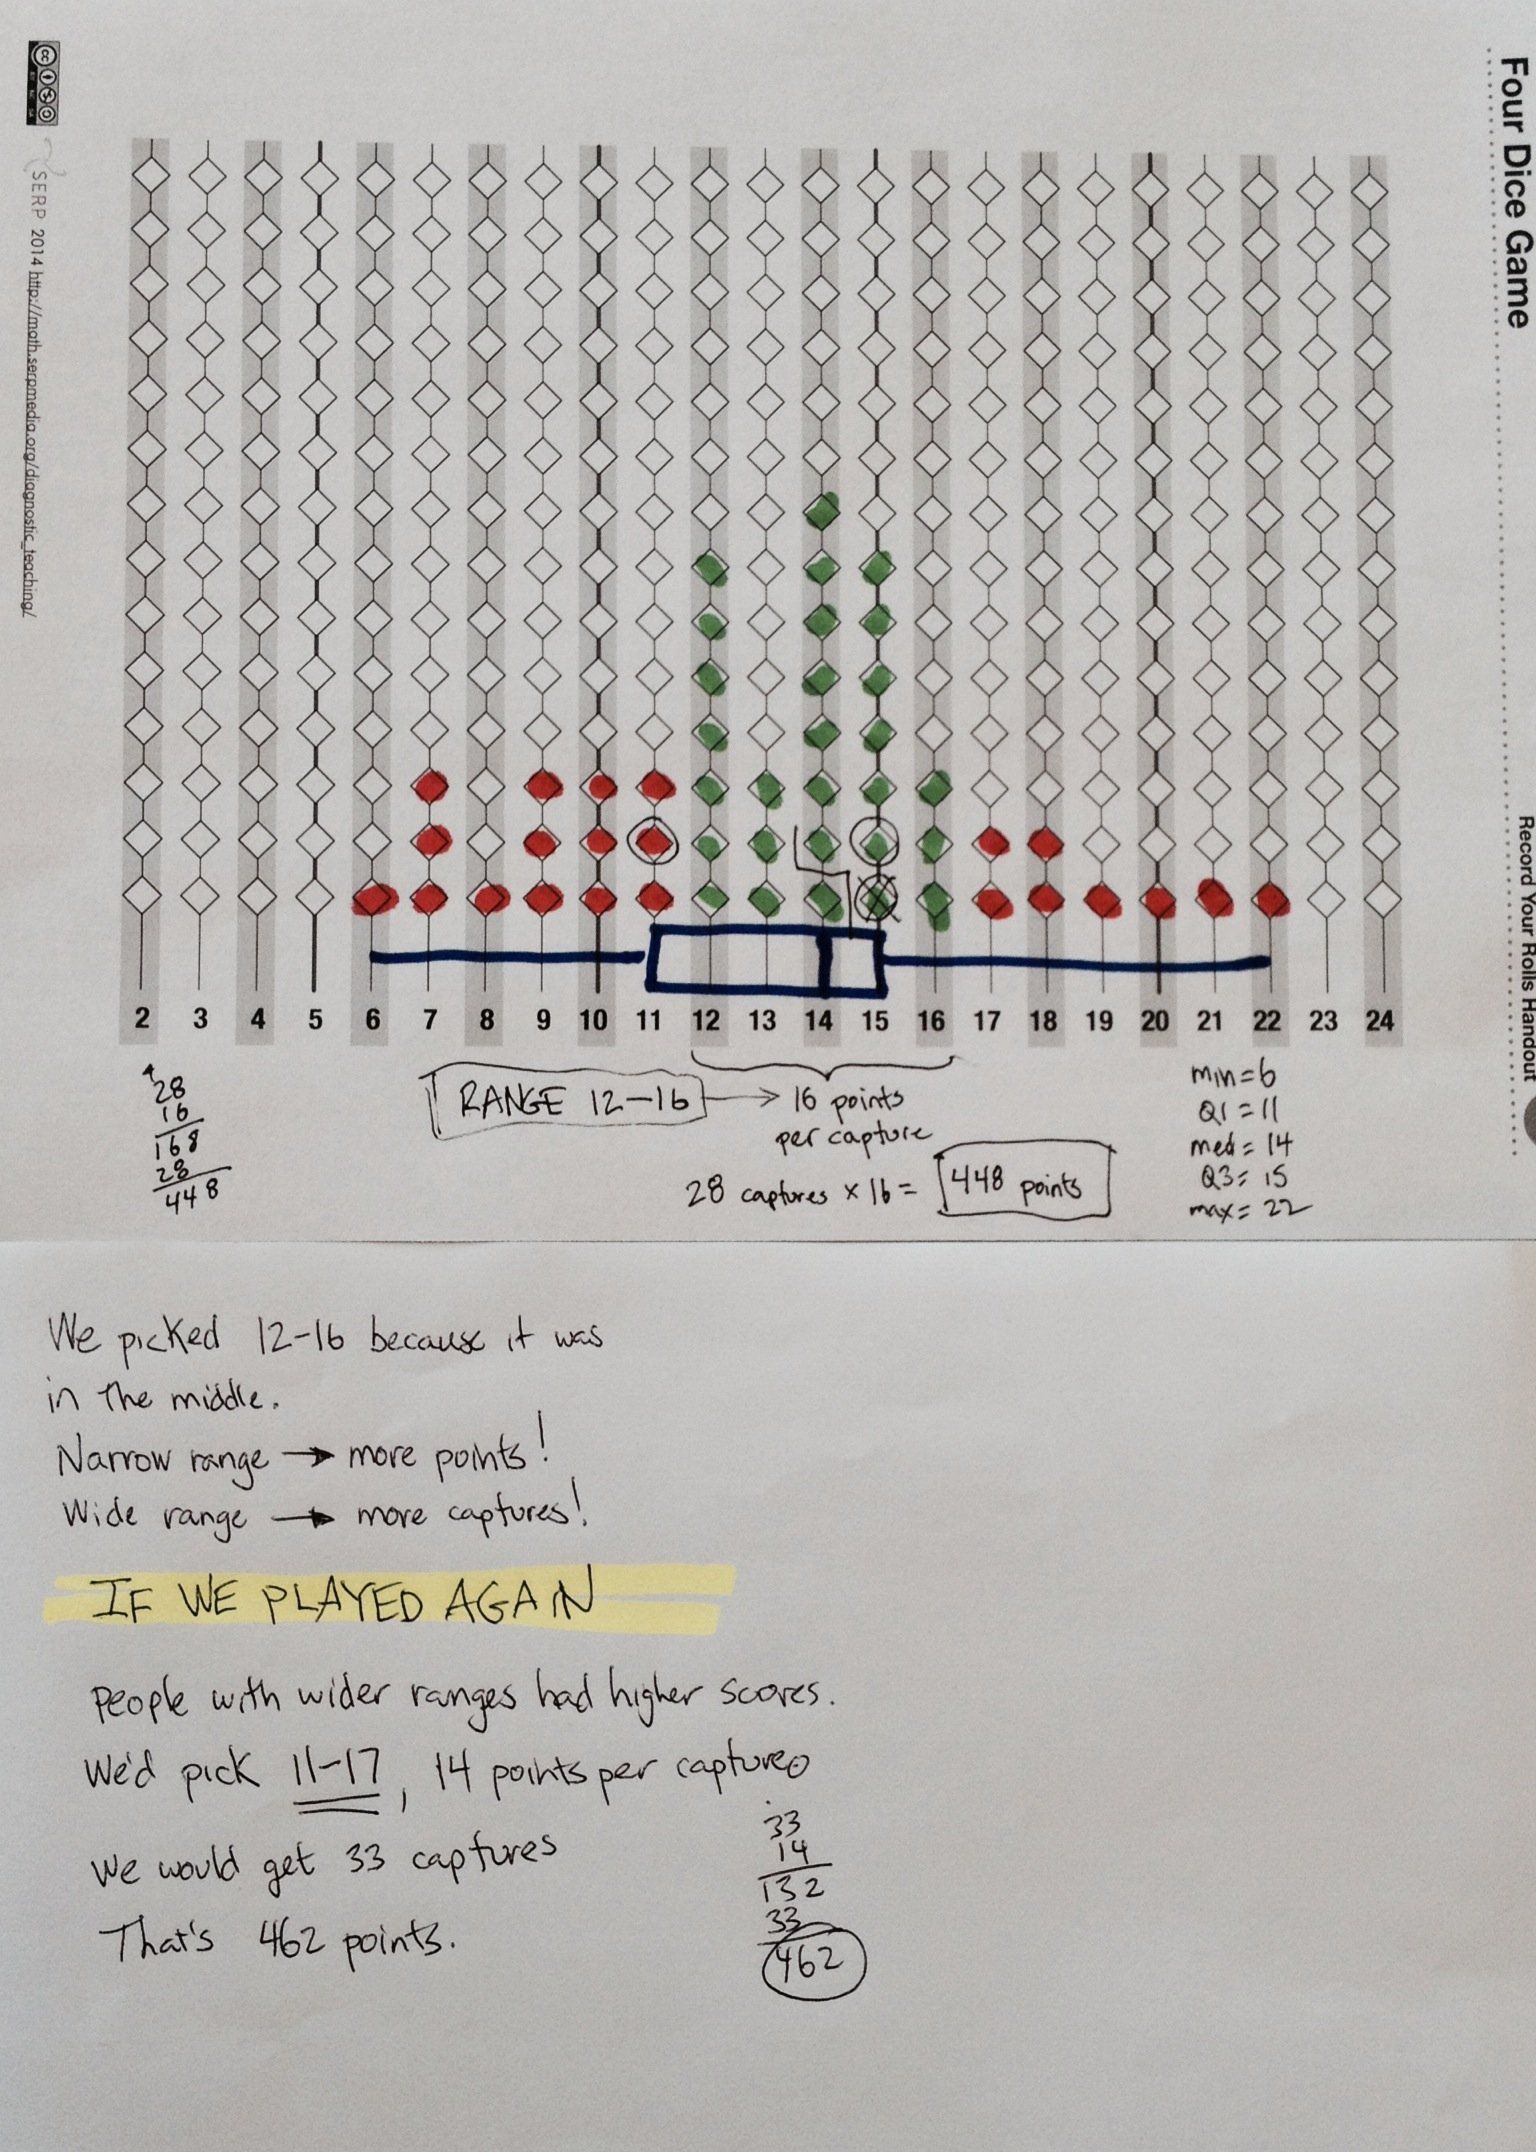 Four Dice Game
Record Your Rolls Handout
SERP 2014 http://math.serpmedia.org/diagnostic_teaching/
2 3 4 5 6 7 8 9 10 11 12 13 14 15 16 17 18 19 20 21 22 23 24
28
16
168
28
448
RANGE 12-16 → 16 points
per capture
28 captures × 16 = 448 points
min=6
Q1=11
med=14
Q3=15
max=22
We picked 12-16 because it was
in the middle.
Narrow range → more points!
Wide range → more captures!
IF WE PLAYED AGAIN
People with wider ranges had higher scores.
We'd pick 11-17, 14 points per capture.
33
14
132
33
462
We would get 33 captures
That's 462 points.